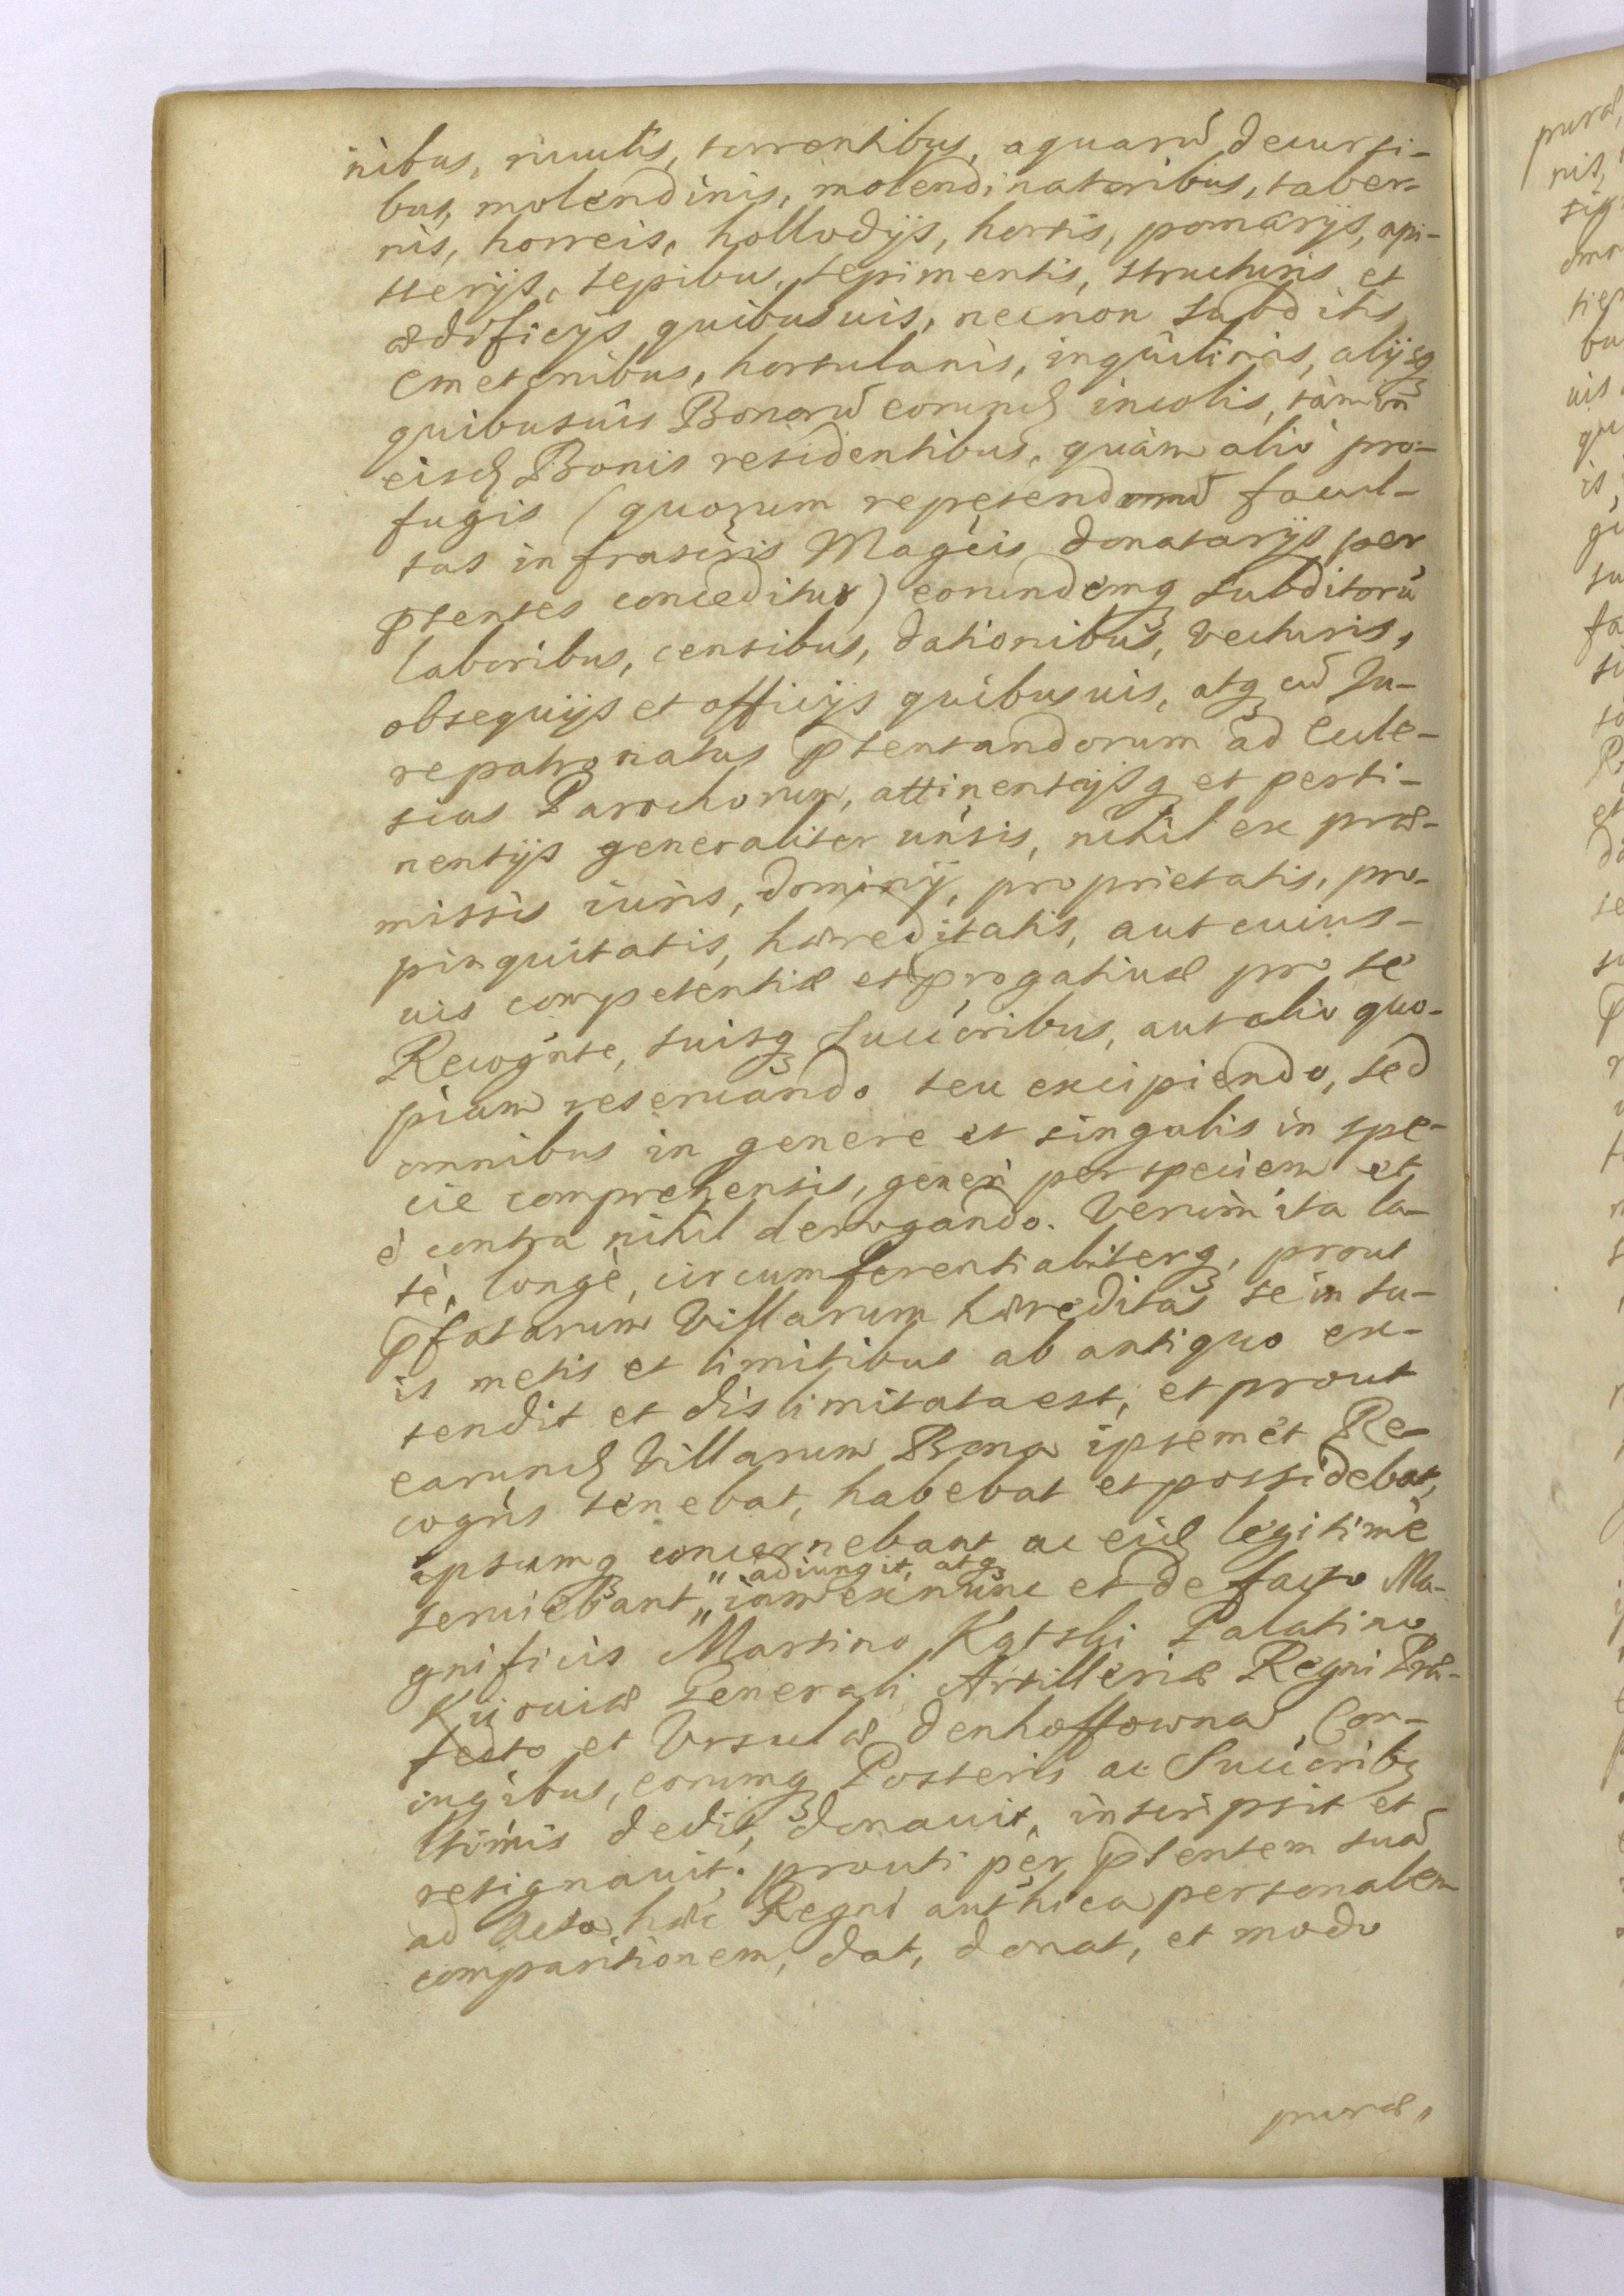 nibus, riuulis, torrentibus, aquarũ decursi-
bus, molendinis, molendinatoribus, taber-
nis, horreis, hollodijs, hortis, pomarijs, api-
sterijs, sepibus, sepimentis, structuris et
ædificijs quibusuis, necnon subditis
Cmetonibus, hortulanis, inquilinis, alijsq
quibusuis Bonorũ eorund incolis, tàm in
eisd Bonis residentibus, quàm aliò pro-
fugis (quorum repetendorum facul-
tas infrascris Magcis donatarijs per
pntes conceditur) eorundemq subditorũ
laboribus, censibus, dationibus, vecturis,
obsequijs et officijs quibusuis, atq cũ Ju-
repatronatus pntandorum ad Eccle-
sias Parochorum, attinentijsq et perti-
nentijs generaliter uńsis, nihil ex præ-
missis iuris, dominij, proprietatis, pro-
pinquitatis, hæreditatis, aut cuius-
uis competentiæ et progatiuæ pro se
Recognte, suisq succoribus, aut alio quo-
piam reseruando seu excipiendo, sed
omnibus in genere et singulis in spe-
cie comprehensis, generi per speciem et
è contra nihil derogando. Verùm ita la-
tè, longè, circumferentialiterq, prout
pfatarum Villarum hæreditas se in su-
is metis et limitibus ab antiquo ex-
tendit et dislimitata est, et prout
earund Villarum Bona ipsemet Re-
cogns tenebat, habebat et possidebat,
ipsumq concernebant ac eid legitimè
adiungit, atq
seruiebant, iam ex nunc et de facto Ma-
gnificis Martino Kątski Palatino
Kijouiæ Generali Artilleriæ Regni Præ-
fecto et Vrsulæ Denhoffowna Con-
iugibus, eorumq Posteris ac Succoribq
ltimis dedit, donauit, inscripsit et
resignauit. prouti per pntem suã
ad Acta hæc Regni authica personalem
comparitionem, dat, donat, et modo
puræ,